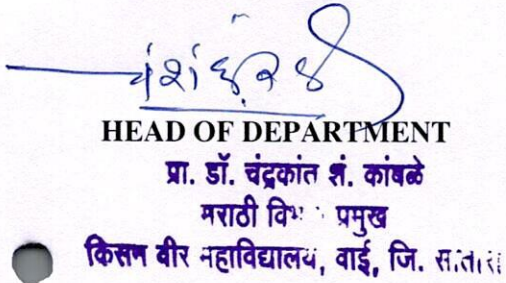 HEAD OF DEPARTMENT
प्रा. डॉ. चंद्रकांत शं. कांबळे
मराठी प्रमुख
किसन वीर महाविद्यालय, वाई, जि.